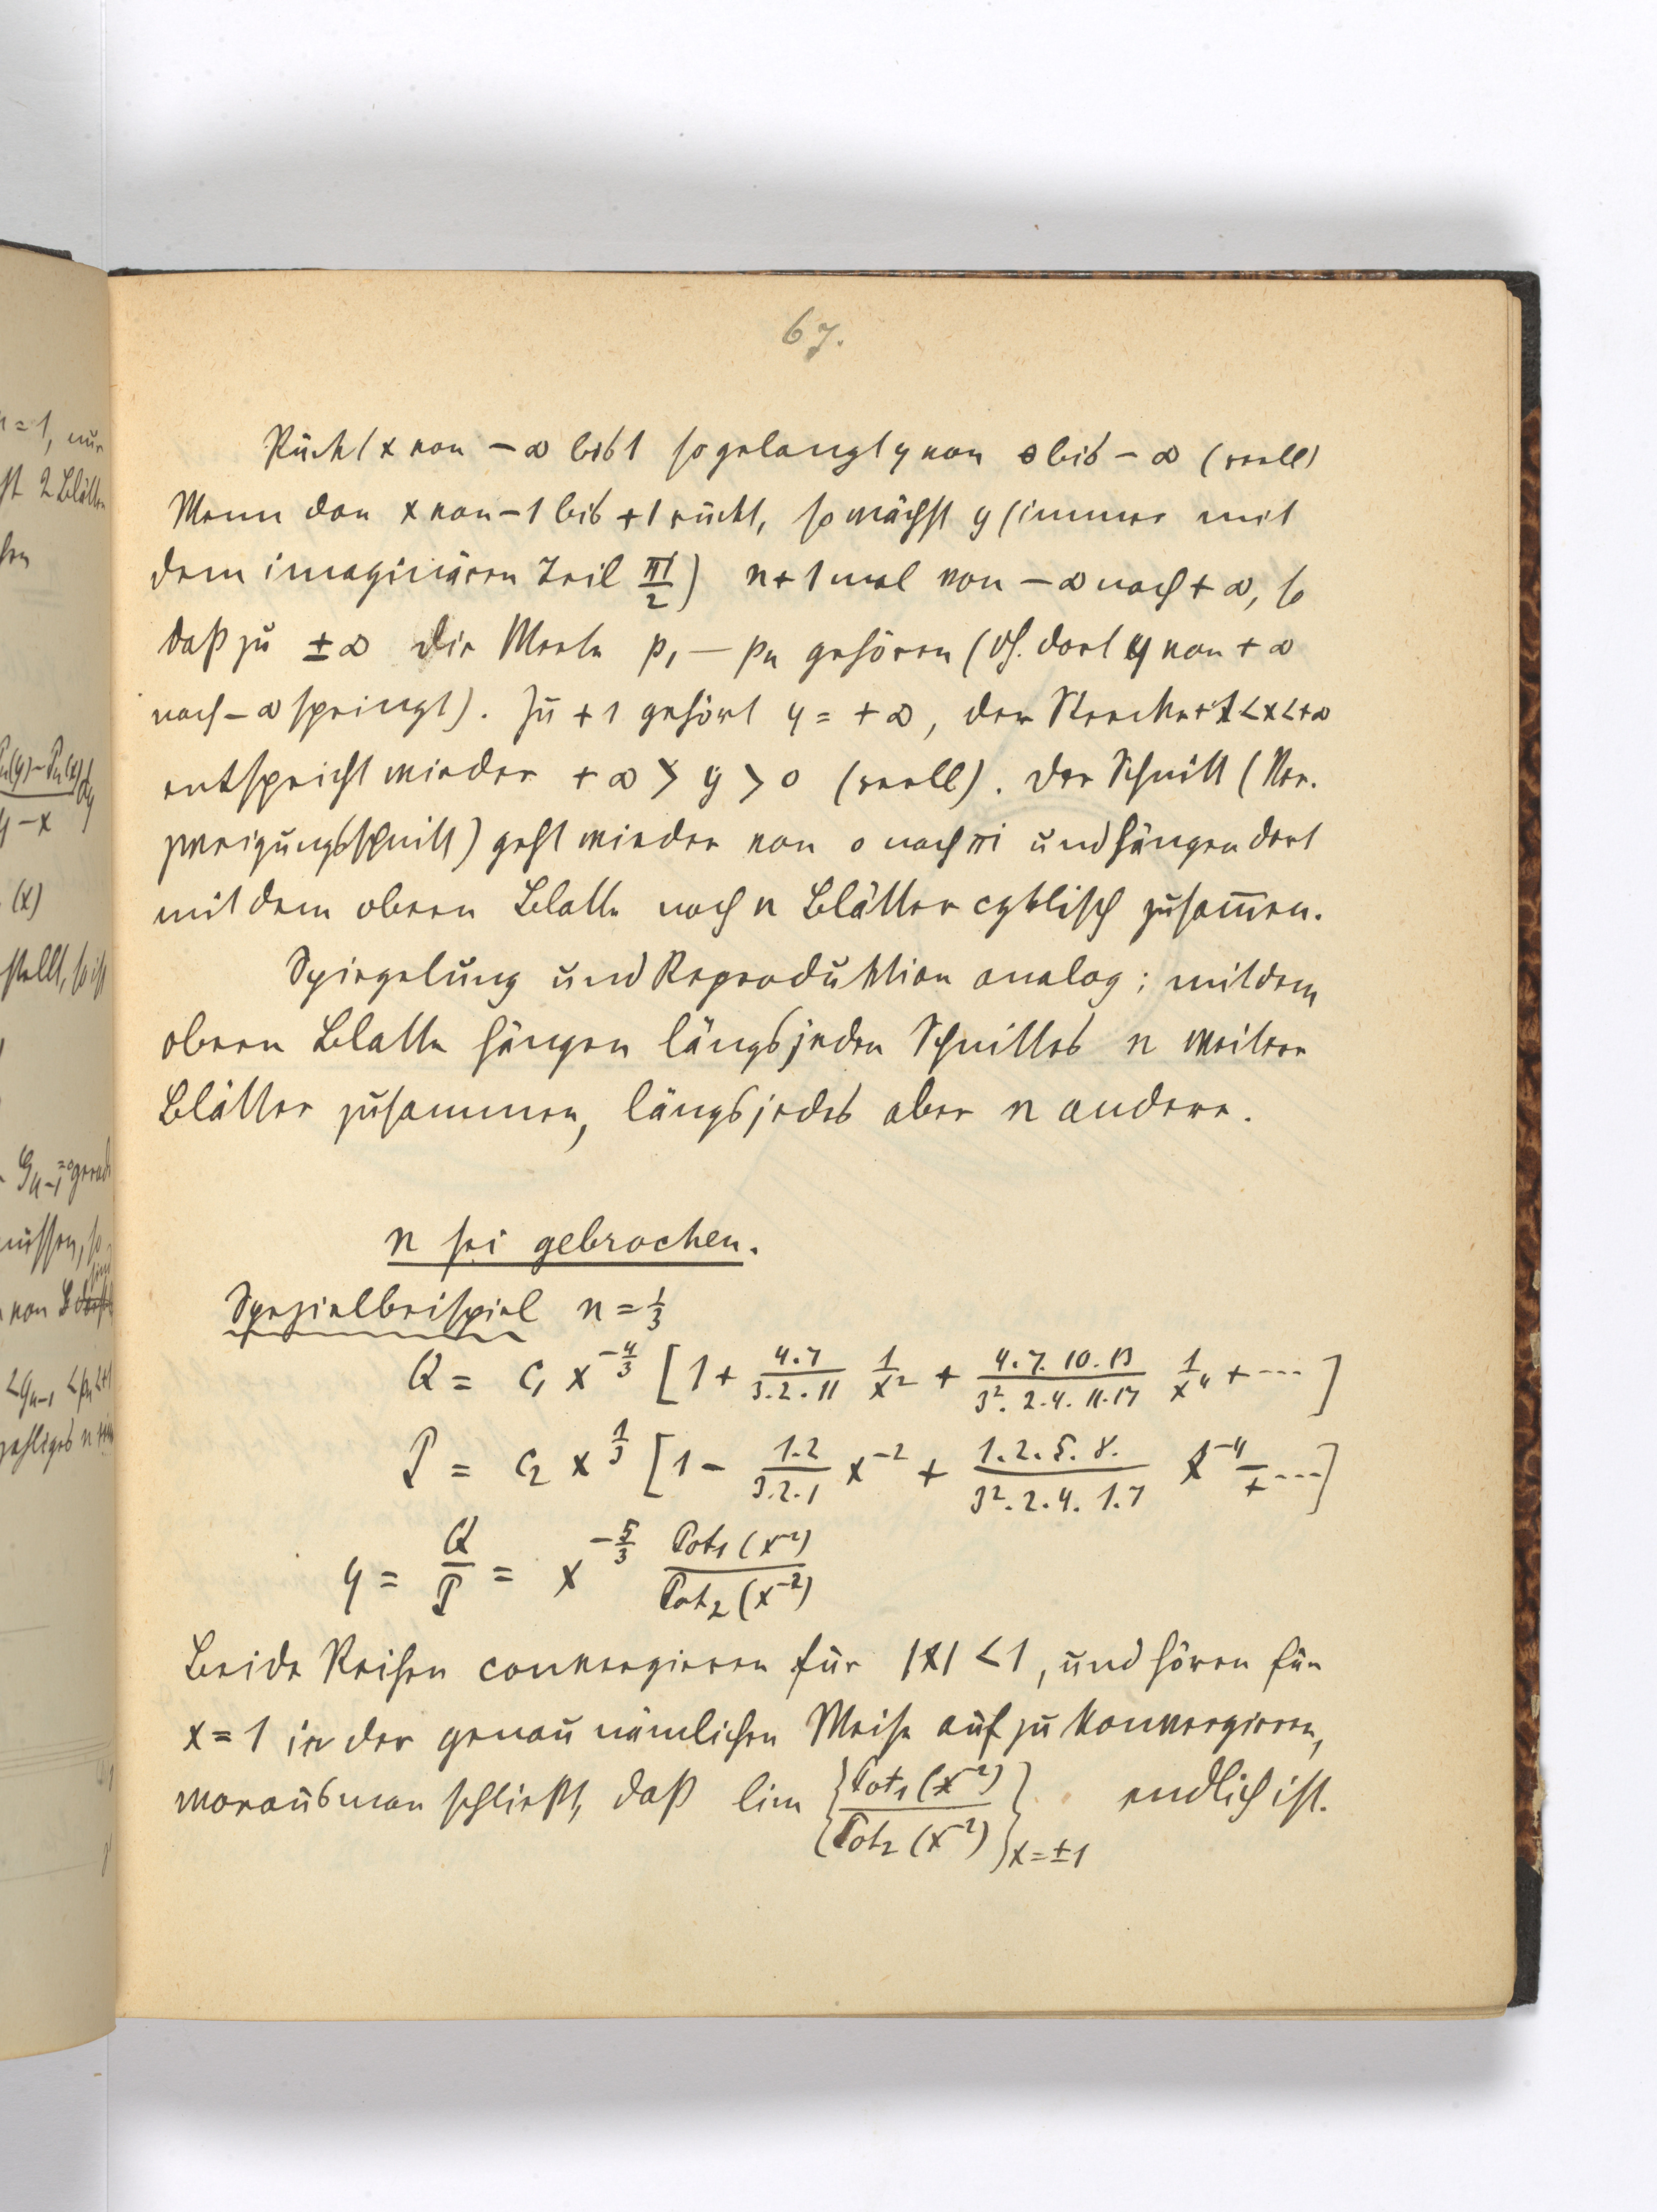 67.
Rückt x von – ∞ bis 1 so gelangt y von 0 bis – ∞ (reell)
Wenn dan x von – 1 bis + 1 rückt, so wächst y (immer mit
dem imaginären Teil πi/2) n + 1 mal von – ∞ nach + ∞, so
daß zu ± ∞ die Werte p₁ – pₙ gehören (d. h. dort y von + ∞
nach – ∞ springt). Zu + 1 gehört y = + ∞, der Strecke + 1 < x < + ∞
entspricht wieder + ∞ > y > 0 (reell). Der Schnitt (Ver-
zweigungsschnitt) geht wieder von 0 nach πi und hängen dort
mit dem obern Blatte noch n Blätter cyklisch zusam̅en.
Spiegelung und Reproduktion analog; mit dem
obern Blatte hängen längs jeden Schnittes n weitere
Blätter zusammen, längs jedes aber n andere.
n sei gebrochen.
Spezialbeispiel n = 1/3
Q = c₁ x^{-4/3} [1 + 4.7/3.2.11 1/x² + 4.7.10.13/3².2.4.11.17 1/x⁴ + ···]
P = c₂ x^{1/3} [1 – 1.2/3.2.1 x⁻² + 1.2.5.8./3².2.4.1.7 x⁻⁴ –/+ ···]
y = Q/P = x^{-5/3} Pot₁(x⁻²)/Pot₂(x⁻²)
Beide Reihen convergieren für |x| < 1, und hören für
x = 1 in der genau nämlichen Weise auf zu konvergieren,
woraus man schließt, daß lim {Pot₁(x⁻²)/Pot₂(x⁻²)}x=±1 endlich ist.